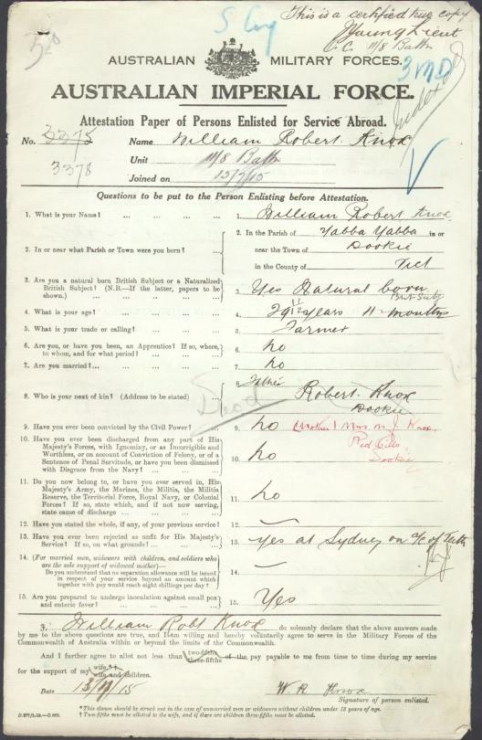 This is a certified true copy
Young Lieut
O.C. 11/8 Battn
S Coy
320
3 MD
AUSTRALIAN MILITARY FORCES.
AUSTRALIAN IMPERIAL FORCE.
Attestation Paper of Persons Enlisted for Service Abroad.
No. 3375 Name William Robert Knox
3378 Unit 11/8 Battn
Joined on 13/7/15
Questions to be put to the Person Enlisting before Attestation.
1. What is your Name? ... 1. William Robert Knox
2. In or near what Parish or Town were you born? ... 2. In the Parish of Yabba Yabba in or
near the Town of Dookie
in the County of Vict
3. Are you a natural born British Subject or a Naturalized
British Subject? (N.B.—If the latter, papers to be
shown.) ... 3. Yes Natural born
Brit Sub
4. What is your age? ... 4. 29 years 11 months
5. What is your trade or calling? ... 5. Farmer
6. Are you, or have you been, an Apprentice? If so, where,
to whom, and for what period? ... 6. No
7. Are you married? ... 7. No
8. Who is your next of kin? (Address to be stated) 8. Father
Robert Knox
Dookie
(Mother) Mrs M. J. Knox,
Dookie
9. Have you ever been convicted by the Civil Power? 9. No
10. Have you ever been discharged from any part of His
Majesty's Forces, with Ignominy, or as Incorrigible and
Worthless, or on account of Conviction of Felony, or of a
Sentence of Penal Servitude, or have you been dismissed
with Disgrace from the Navy? ... 10. No
11. Do you now belong to, or have you ever served in, His
Majesty's Army, the Marines, the Militia, the Militia
Reserve, the Territorial Force, Royal Navy, or Colonial
Forces? If so, state which, and if not now serving,
state cause of discharge ... 11. No
12. Have you stated the whole, if any, of your previous service? 12. —
13. Have you ever been rejected as unfit for His Majesty's
Service? If so, on what grounds? ... 13. yes at Sydney on a/c of Teeth
14. (For married men, widowers with children, and soldiers who
are the sole support of widowed mother)—
Do you understand that no separation allowance will be issued
in respect of your service beyond an amount which
together with pay would reach eight shillings per day? 14. —
15. Are you prepared to undergo inoculation against small pox
and enteric fever? ... 15. Yes
I, William Robt Knox do solemnly declare that the above answers made
by me to the above questions are true, and I am willing and hereby voluntarily agree to serve in the Military Forces of the
Commonwealth of Australia within or beyond the limits of the Commonwealth.
And I further agree to allot not less than two-fifths
three-fifths of the pay payable to me from time to time during my service
for the support of my wife
wife and children.
Date 13/7/15 W. R. Knox
Signature of person enlisted.
*This should be struck out in the case of unmarried men or widowers without children under 18 years of age.
† Two fifths must be allotted to the wife, and if there are children three fifths must be allotted.